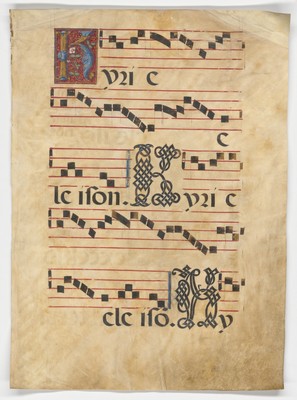 Kyri e
e
le ison. Kyri e
ele iso. Ky